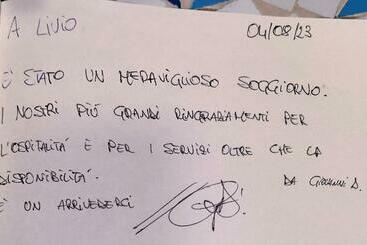 A LIVIO 04/08/23
È STATO UN MERAVIGLIOSO SOGGIORNO.
I NOSTRI PIÙ GRANDI RINGRAZIAMENTI PER
L'OSPITALITÀ E PER I SERVIZI OLTRE CHE LA
DISPONIBILITÀ. DA GIOVANNI D.
È UN ARRIVEDERCI